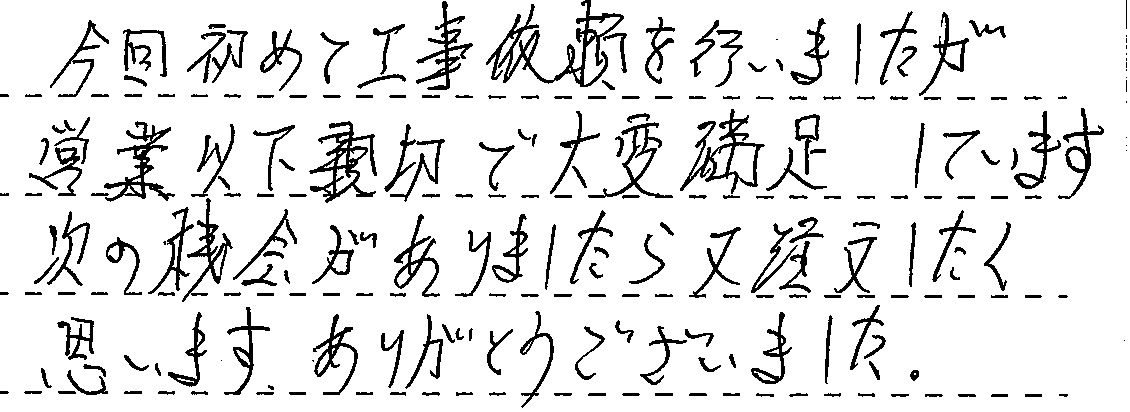 今回初めて工事依頼を行いましたが
営業以下親切で大変満足 しています
次の機会がありましたら又注文したく
思います。ありがとうございました。